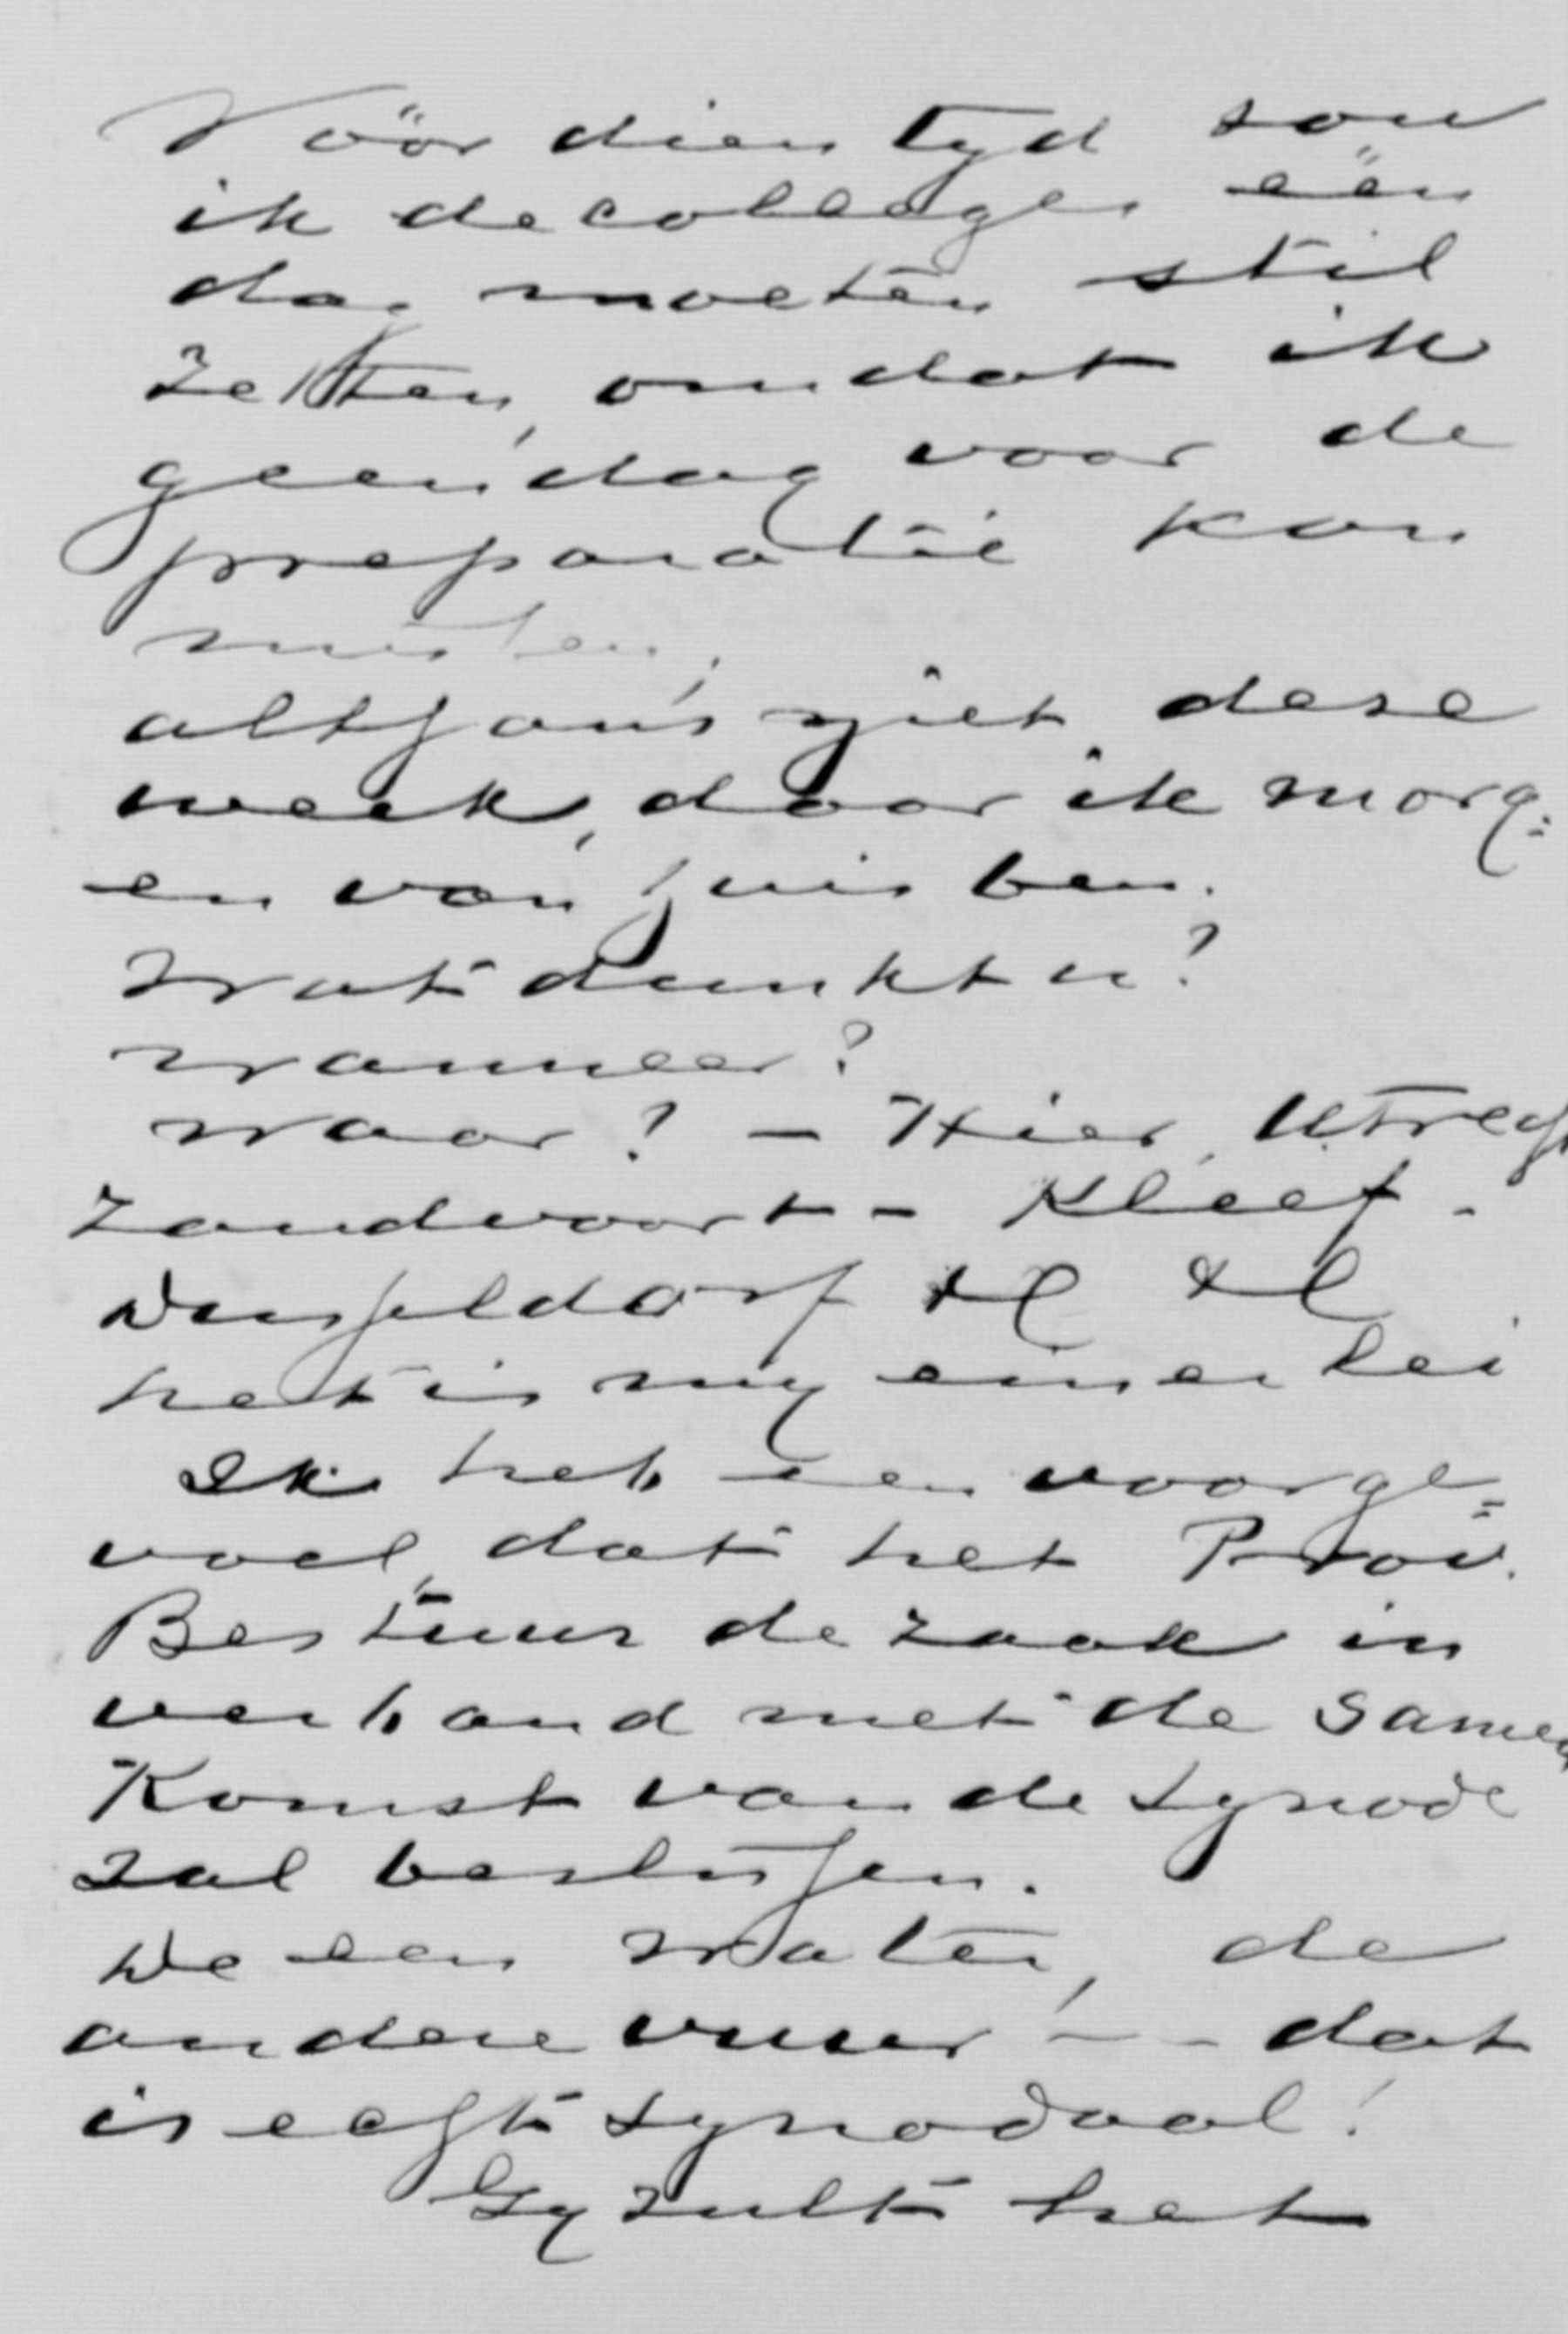 Vóór dien tyd zou
ik de colleges één
dag moeten stil
zetten, omdat ik
geen dag voor de
preparatie kon
missen,
althans niet deze
week, daar ik morg=
en van huis ben.
Wat dunkt u?
Wanneer?
Waar? — Hier, Utrecht
Zandvoort - Kleef -
Dusseldorf &c &c
het is my einerlei
Ik heb een voorge=
voel, dat het Prov.
Bestuur de zaak in
verband met de Samen
Komst van de Synode
zal beslissen.
De een water, de
andere vuur! — - dat
is echt Synodaal!
Gy zult het